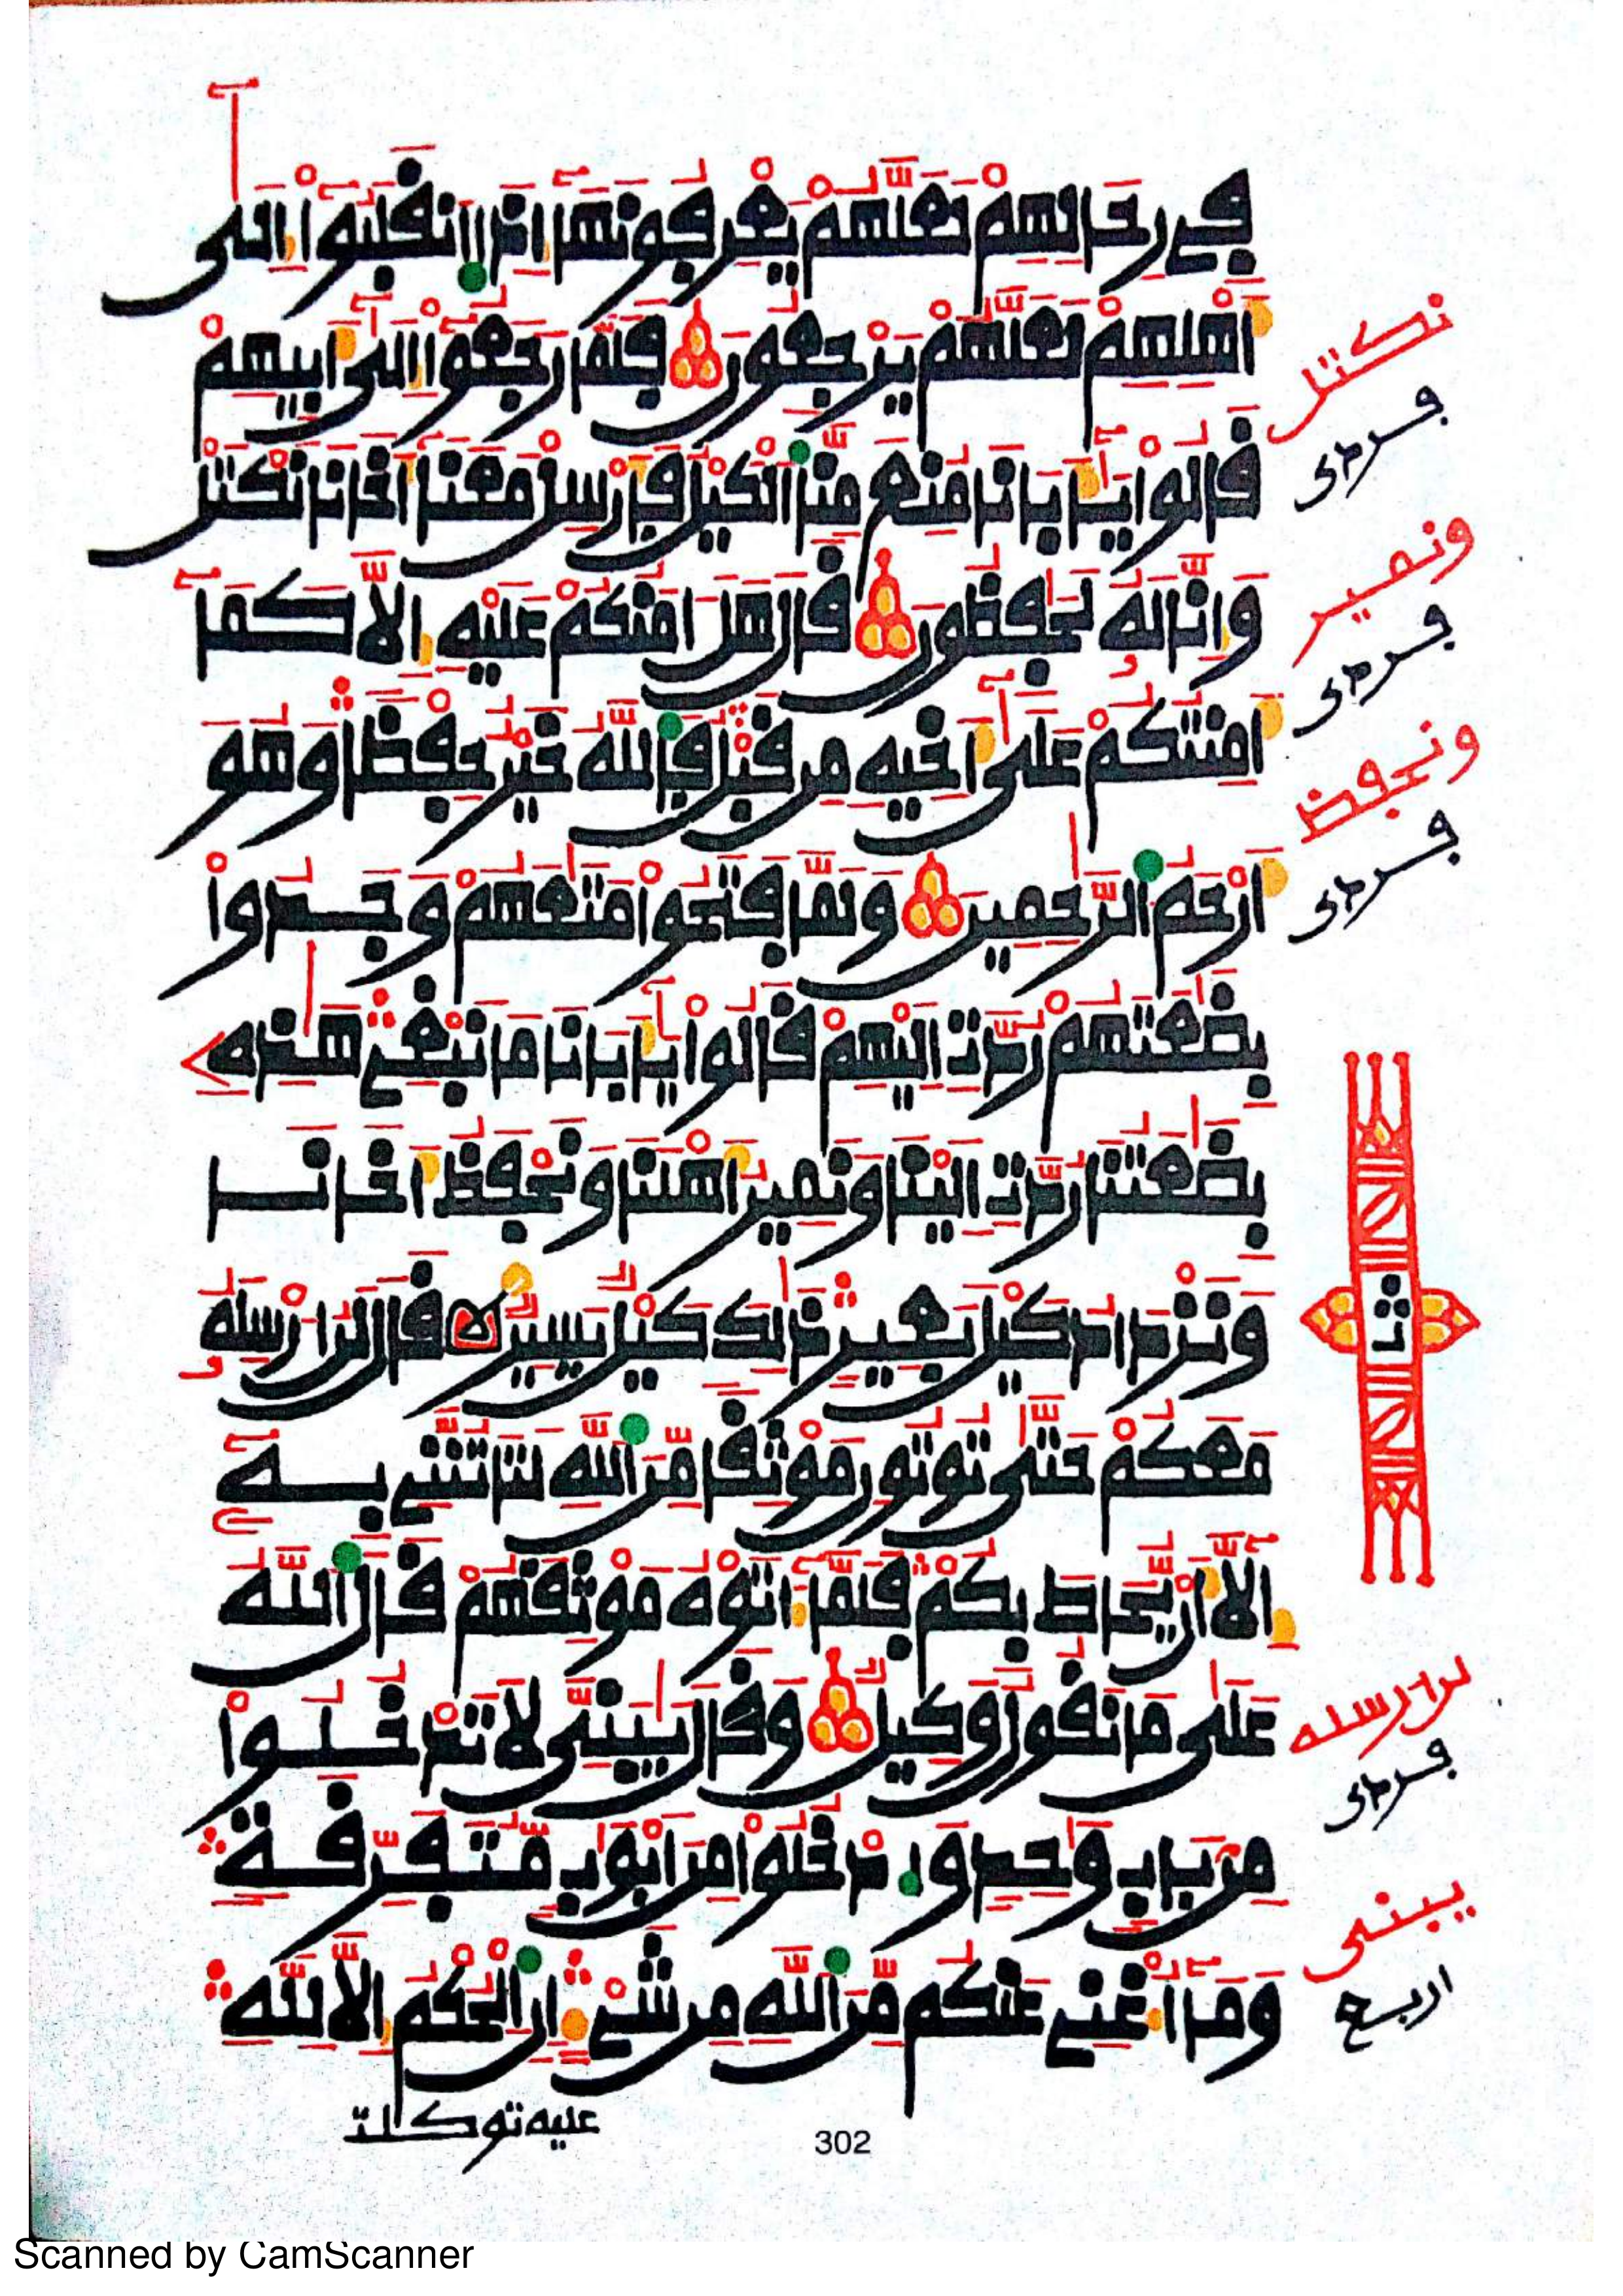 فِي رِحَالِهِمْ لَعَلَّهُمْ يَعْرِفُونَهَا إِذَا ٱنقَلَبُوٓاْ إِلَىٰٓ
أَهْلِهِمْ لَعَلَّهُمْ يَرْجِعُونَ فَلَمَّا رَجَعُوٓاْ إِلَىٰٓ أَبِيهِمْ
نكتل
قَالُواْ يَٰٓأَبَانَا مُنِعَ مِنَّا ٱلْكَيْلُ فَأَرْسِلْ مَعَنَآ أَخَانَا نَكْتَلْ
فردى
وَإِنَّا لَهُۥ لَحَٰفِظُونَ قَالَ هَلْ ءَامَنُكُمْ عَلَيْهِ إِلَّا كَمَآ
ونمير
فردى
أَمِنتُكُمْ عَلَىٰٓ أَخِيهِ مِن قَبْلُ فَٱللَّهُ خَيْرٌ حِفْظًا وَهُوَ
ونحفظ
أَرْحَمُ ٱلرَّٰحِمِينَ وَلَمَّا فَتَحُواْ مَتَٰعَهُمْ وَجَدُواْ
فردى
بِضَٰعَتَهُمْ رُدَّتْ إِلَيْهِمْ قَالُواْ يَٰٓأَبَانَا مَا نَبْغِي هَٰذِهِۦ
بِضَٰعَتُنَا رُدَّتْ إِلَيْنَا وَنَمِيرُ أَهْلَنَا وَنَحْفَظُ أَخَانَا
وَنَزْدَادُ كَيْلَ بَعِيرٍ ذَٰلِكَ كَيْلٌ يَسِيرٌ قَالَ لَنْ أُرْسِلَهُۥ
مَعَكُمْ حَتَّىٰ تُوتُونِ مَوْثِقًا مِّنَ ٱللَّهِ لَتَاتُنَّنِي بِهِۦٓ
إِلَّآ أَنْ يُحَاطَ بِكُمْ فَلَمَّآ ءَاتَوْهُ مَوْثِقَهُمْ قَالَ ٱللَّهُ
عَلَىٰ مَا نَقُولُ وَكِيلٌ وَقَالَ يَٰبَنِيَّ لَا تَدْخُلُواْ
لن ارسله
فردى
مِنۢ بَابٍ وَٰحِدٍ وَٱدْخُلُواْ مِنْ أَبْوَٰبٍ مُّتَفَرِّقَةٍ
يبني
وَمَآ أُغْنِي عَنكُم مِّنَ ٱللَّهِ مِن شَيْءٍ إِنِ ٱلْحُكْمُ إِلَّا لِلَّهِ
اربع
عليه توكلت
302
Scanned by CamScanner